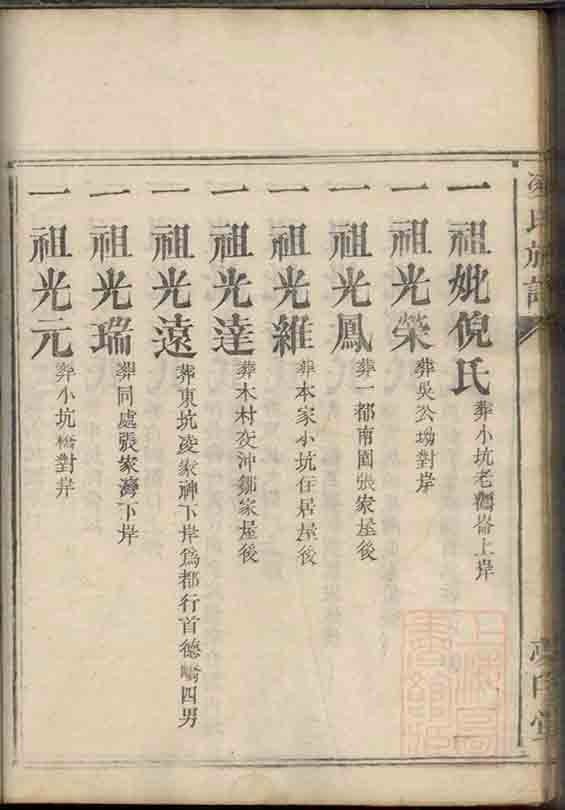 一祖妣倪氏 葬小坑老鸛崙上岸
一祖光榮 葬吳公坳對岸
一祖光鳳 葬一都南園張家屋後
一祖光維 葬本家小坑住居屋後
一祖光達 葬木村茭沖鄒家屋後
一祖光遠 葬東坑凌家神下岸爲都行首德嶹四男
一祖光瑞 葬同處張家灣下岸
一祖光元 葬小坑橋對岸
凌氏族譜